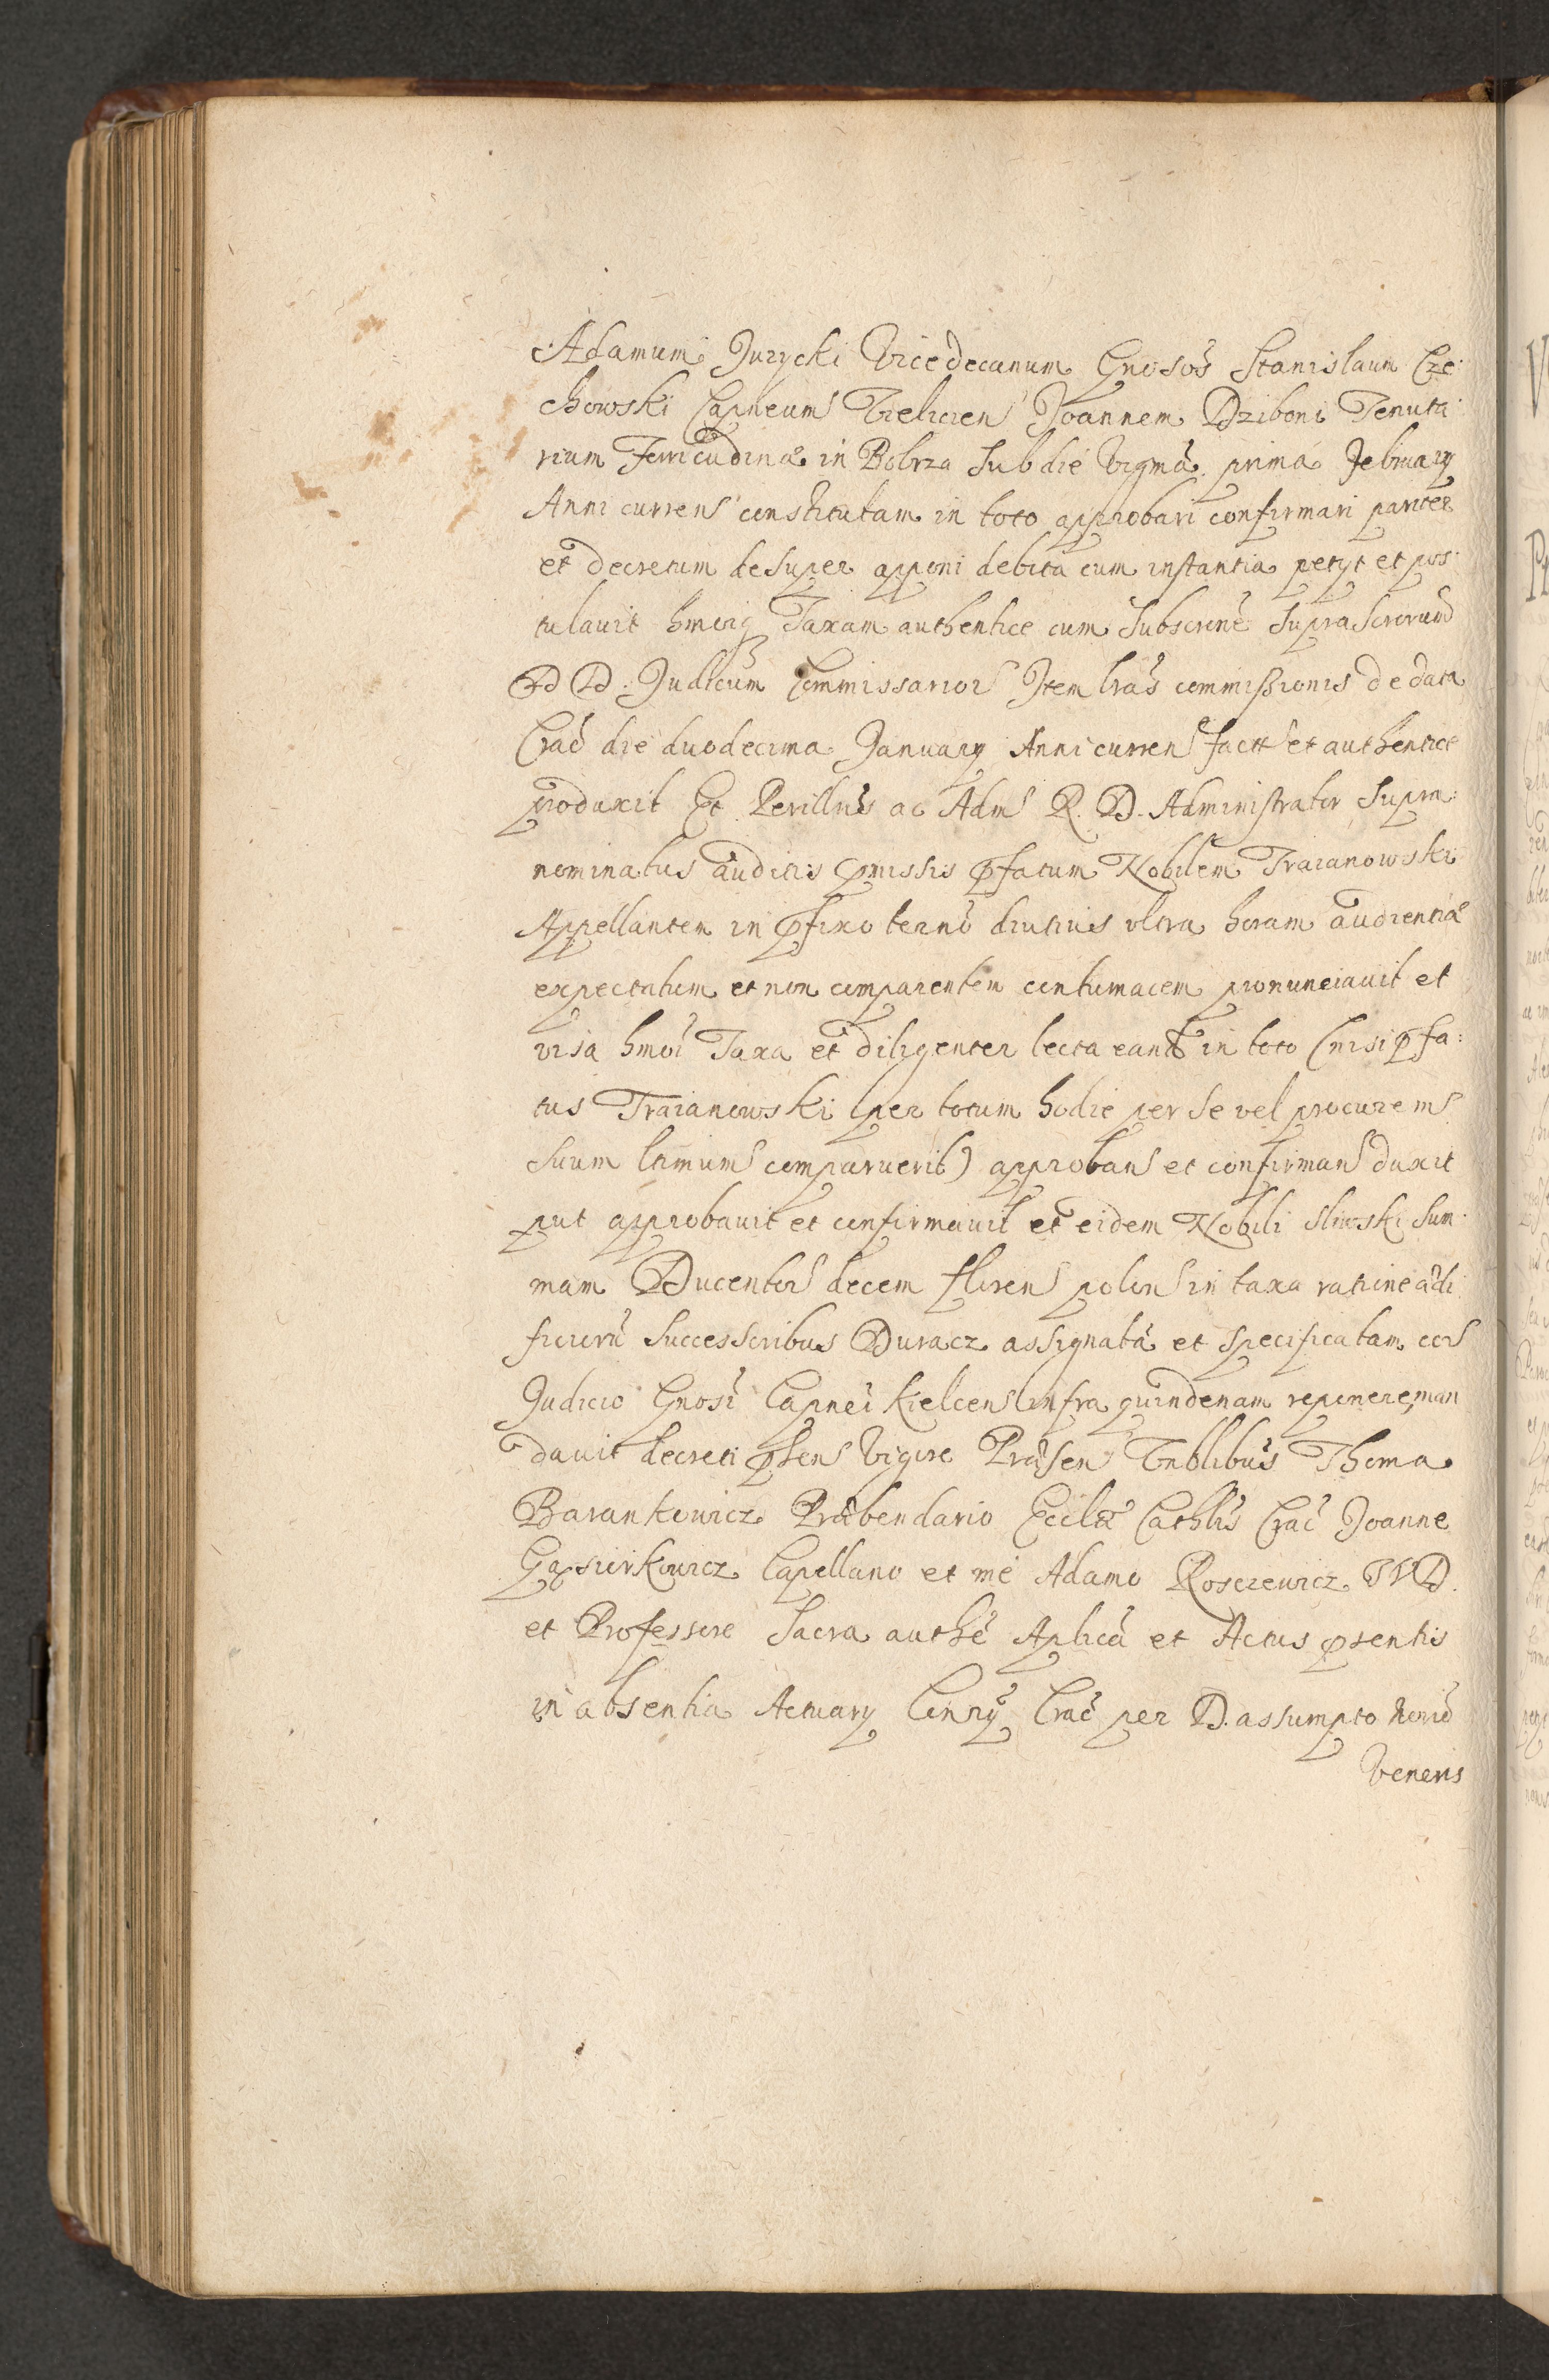 Adamum Jurycki Vicedecanum Gnosos Stanislaum Cze:
chowski Capneum Kielicien Joannem Dziboni Tenuta:
rium Ferricudinæ in Bobrza sub die Vigmā prima February
Anni curren constitutam in toto approbari confirmari pariter
et decretum desuper apponi debita cum instantia petyt et pos:
tulavit Taxam authentice cum Subscrine suprascrorum
DD. Judicum Commissarior Item lras commissionis de data
Crac die duodecima January Anni curren fact et authentice
produxit Et Perillris ac Adm R. D. Administrator supra:
nominatus auditis pmissis pfatum Nobilem Traianowski
Appellantem in pfixo termo diutius ultra horam audientiæ
expectatum et non comparentem contumacem pronunciavit et
visa hmoi Taxa et diligenter lecta eand in toto (nisi pfa:
tus Traianowski per totum hodie per se vel procurem
suum ltimum comparuerit) approban et confirman duxit
put approbavit et confirmavit et eidem Nobili Sliwski Sum:
mam Ducentor decem floren polon in taxa ratione ædi
ficiorū Successoribus Duracz assignatā et specificatam cor
Judicio Gnosi Capnei Kielcen infra quindenam reponere man
davit decreti pnsen vigore Præsen Vnblibus Thoma
Barankowicz Præbendario Ecclæ Cathlis Crac Joanne
Gąsiorkowicz Capellano et me Adamo Roszewicz IVD.
et Professore Sacra authē Aplicā et Actus psentis
in absentia Actuary Conry Crac per D. assumpto Norio
Veneris